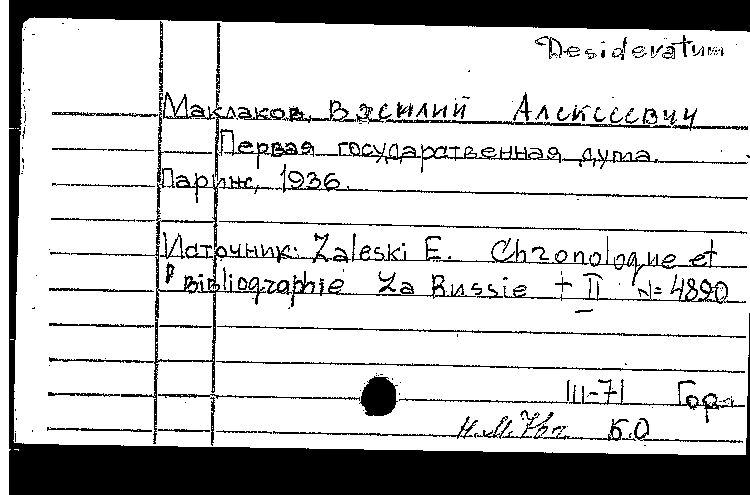 Desideratum
Маклаков, Василий Алексеевич
Первая государственная дума.
Париж, 1936.
Источник: Zaleski E. Chronologue et
Bibliographie La Russie t II N=4890
III-71 Гор
Б.О